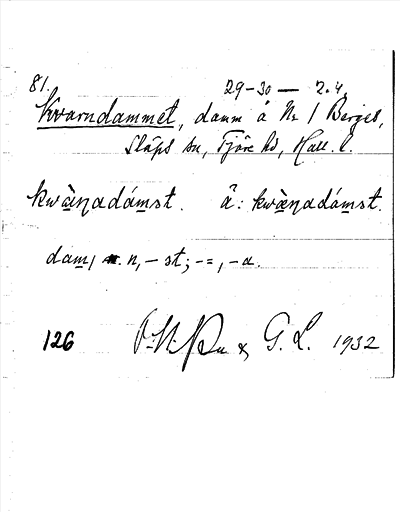 81. 29-30 — 2.4.
Kvarndammet, damm å Nr 1 Berges,
Släps sn, Fjäre hd, Hall. l.
kwæ̀ŋadámst. â: kwæ̀ŋadámst.
dam, n, - st; -=, -a.
126 & G. L. 1932